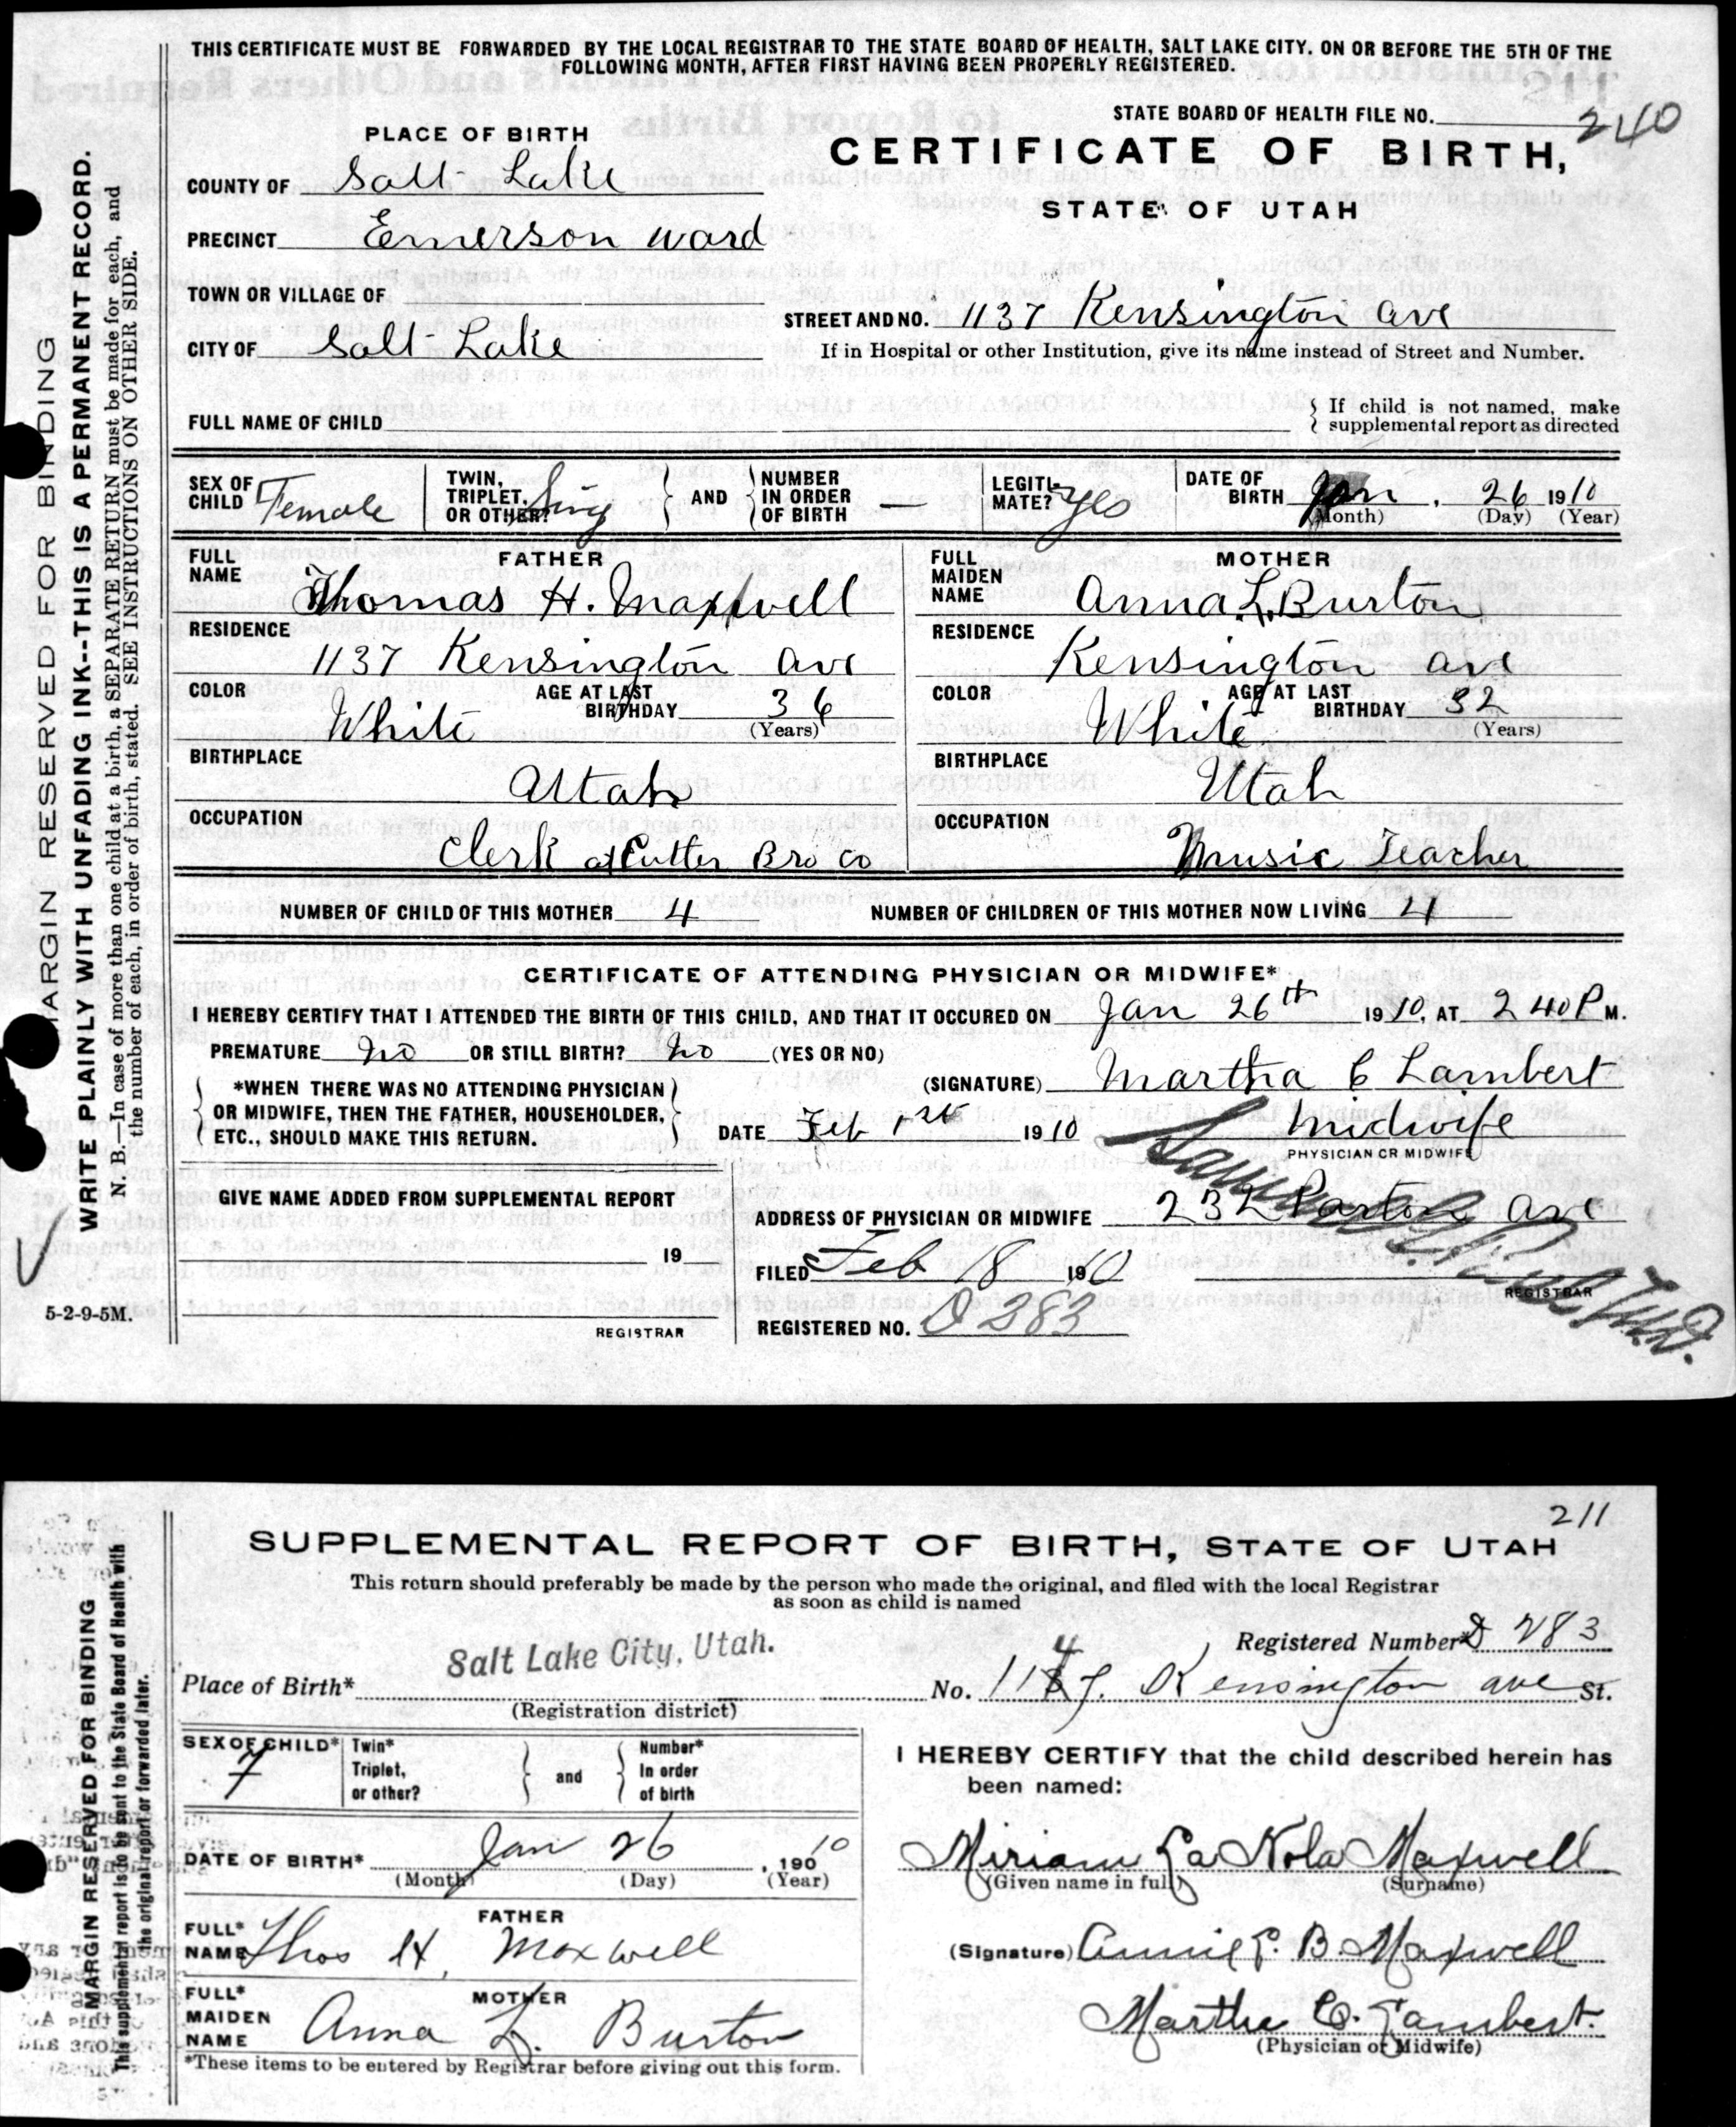 THIS CERTIFICATE MUST BE FORWARDED BY THE LOCAL REGISTRAR TO THE STATE BOARD OF HEALTH, SALT LAKE CITY. ON OR BEFORE THE 5TH OF THE
FOLLOWING MONTH, AFTER FIRST HAVING BEEN PROPERLY REGISTERED.
STATE BOARD OF HEALTH FILE NO. 240
PLACE OF BIRTH
CERTIFICATE OF BIRTH,
STATE OF UTAH
COUNTY OF Salt Lake
PRECINCT Emerson ward
TOWN OR VILLAGE OF
STREET AND NO. 1137 Kensington ave
CITY OF Salt Lake
If in Hospital or other Institution, give its name instead of Street and Number.
FULL NAME OF CHILD
If child is not named, make
supplemental report as directed
SEX OF CHILD Female
TWIN, TRIPLET, OR OTHER? Sing
AND
NUMBER IN ORDER OF BIRTH —
LEGITIMATE? yes
DATE OF BIRTH Jan, 26 1910
(Month) (Day) (Year)
FATHER
FULL NAME Thomas H. Maxwell
RESIDENCE
1137 Kensington ave
COLOR White
AGE AT LAST BIRTHDAY 36
(Years)
BIRTHPLACE
Utah
OCCUPATION
Clerk at Cutter Bro Co
MOTHER
FULL MAIDEN NAME Anna L. Burton
RESIDENCE
Kensington ave
COLOR White
AGE AT LAST BIRTHDAY 32
(Years)
BIRTHPLACE
Utah
OCCUPATION
Music Teacher
NUMBER OF CHILD OF THIS MOTHER 4
NUMBER OF CHILDREN OF THIS MOTHER NOW LIVING 4
CERTIFICATE OF ATTENDING PHYSICIAN OR MIDWIFE*
I HEREBY CERTIFY THAT I ATTENDED THE BIRTH OF THIS CHILD, AND THAT IT OCCURED ON Jan 26th 1910, AT 2 40 P M.
PREMATURE no OR STILL BIRTH? no (YES OR NO)
*WHEN THERE WAS NO ATTENDING PHYSICIAN
OR MIDWIFE, THEN THE FATHER, HOUSEHOLDER,
ETC., SHOULD MAKE THIS RETURN.
(SIGNATURE) Martha C Lambert
DATE Feb 1st 1910
Midwife
PHYSICIAN OR MIDWIFE
GIVE NAME ADDED FROM SUPPLEMENTAL REPORT
19
REGISTRAR
ADDRESS OF PHYSICIAN OR MIDWIFE 232 Ave
FILED Feb 18 1910
REGISTRAR
REGISTERED NO. D 283
MARGIN RESERVED FOR BINDING
WRITE PLAINLY WITH UNFADING INK--THIS IS A PERMANENT RECORD.
N. B.—In case of more than one child at a birth, a SEPARATE RETURN must be made for each, and
the number of each, in order of birth, stated. SEE INSTRUCTIONS ON OTHER SIDE.
5-2-9-5M.
211
SUPPLEMENTAL REPORT OF BIRTH, STATE OF UTAH
This return should preferably be made by the person who made the original, and filed with the local Registrar
as soon as child is named
Registered Number* D 283
Place of Birth* Salt Lake City, Utah.
(Registration district)
No. 1147. Kensington ave St.
SEX OF CHILD* F
Twin* Triplet, or other?
and
Number* In order of birth
DATE OF BIRTH* Jan 26, 190 10
(Month) (Day) (Year)
FATHER
FULL* NAME Thos H. Maxwell
MOTHER
FULL* MAIDEN NAME Anna L. Burton
*These items to be entered by Registrar before giving out this form.
I HEREBY CERTIFY that the child described herein has
been named:
Miriam La Nola Maxwell
(Given name in full) (Surname)
(Signature) Annie L. B. Maxwell
Martha C. Lambert.
(Physician or Midwife)
MARGIN RESERVED FOR BINDING
This supplemental report is to be sent to the State Board of Health with
the original report or forwarded later.